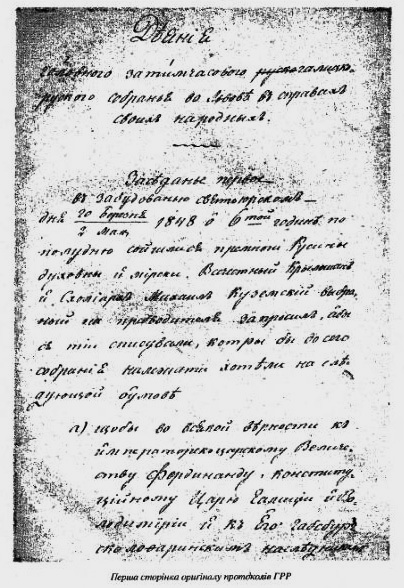 Дѣяніє
головного затимчасового
руского собранья во Львовѣ въ справахъ
своихъ народныхъ.
Засѣданье первое
въ забудованю свѣтоюрскомъ
дня 20 Березня 1848 о 6той годинѣ по
2 Мая
полудню зойшлися премногіи Русины
духовны и мірски. Крылошанинъ
и Схолярха Михаилъ Куземскій выбра
ный на проводителя запросилъ, абы
ся тіи списували, котры бы до сего
собраніѧ належати хотѣли на слѣ
дующой умовѣ
а) щобы во всякой вѣрности къ
императорско царскому Велич
ству Фердинанду, конститу
ційному Царю Галиціи и Во
лодимеріи и къ Его габсбур
ско лотаринскимъ наслѣдникамъ
Перша сторінка оригіналу протоколів ГРР